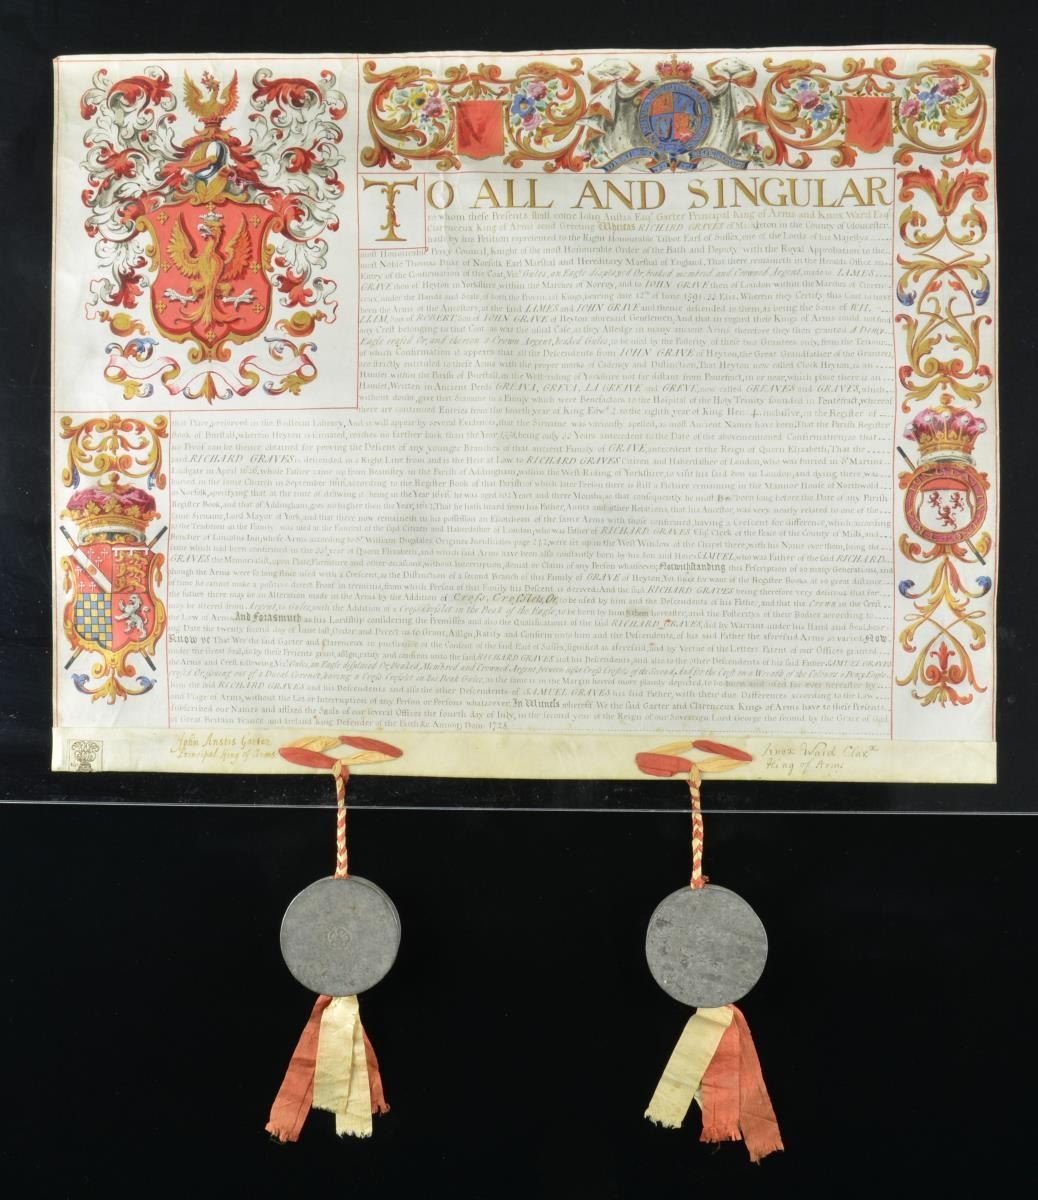 TO ALL AND SINGULAR
to whom these Presents shall come John Anstis Esqr. Garter Principal King of Arms and Knox Ward Esqr.
Clarenceux King of Arms send Greeting Whereas RICHARD GRAVES of in the County of Gloucester
hath by his Petition represented to the Right Honourable Talbot Earl of Sussex, one of the Lords of his Majestys
most Honourable Privy Council, Knight of the most Honourable Order of the Bath and Deputy with the Royal Approbation to the
most Noble Thomas Duke of Norfolk Earl Marshal and Hereditary Marshal of England, That there remaineth in the Heralds Office an
Entry of the Confirmation of this Coat, Vizt. Gules, an Eagle displayed Or beaked membred and Crowned Argent, made to IAMES
GRAVE then of Heyton in Yorkshire, within the Marches of Norroy, and to IOHN GRAVE then of London within the Marches of Claren-
ceux, under the Hands and Seals of both the Provincial Kings, bearing date 12th of June 1591. 33 Eliz. Wherein they Certify this Coat to have
been the Arms of the Ancestors, of the said IAMES and IOHN GRAVE and thence descended to them, as being the Sons of WIL
LIAM, Son of ROBERT, Son of IOHN GRAVE of Heyton aforesaid Gentlemen, And that in regard those Kings of Arms could not find
any Crest belonging to that Coat as was the usual Case, as they Alledge in many ancient Arms therefore they then granted A Demy
Eagle erazed Or, and thereon a Crown Argent, beaked Gules, to be used by the Posterity of these two Grantees only, from the Tenour
of which Confirmation it appears that all the Descendants from IOHN GRAVE of Heyton, the Great Grandfather of the Grantees,
are strictly entituled to these Arms with the proper marks of Cadency and Distinction, That Heyton now called Cleck Heyton, is an
Hamlet within the Parish of Burstall, in the West-riding of Yorkshire not far distant from Pontefract, in or near, which place there is an
Hamlet, Written in Ancient Deeds GREAVA, GREVA, LA GREINE and GREVE, now called GREAVES and GRAVES, which
without doubt, gave that Sirname to a Family which were Benefactors to the Hospital of the Holy Trinity founded in Pontefract, whereof
there are continued Entries from the fourth year of King Edwd. 2. to the eighth year of King Hen: 4. inclusive, in the Register of
that Place, preserved in the Bodleian Library, And it will appear by several Exhibits, that the Sirname was variously spelled, as most Ancient Names have been, That the Parish Register
Book of Burstall, wherein Heyton is situated, reaches no farther back than the Year 1558, being only 33 Years antecedent to the Date of the abovementioned Confirmation, so that
no Proof can be thence obtained for proving the Descent of any younger Branches of that ancient Family of GRAVE, antecedent to the Reign of Queen Elizabeth, That the
said RICHARD GRAVES is descended in a Right Line from and is the Heir at Law to RICHARD GRAVES Citizen and Haberdasher of London, who was buried in St. Martins
Ludgate in April 1626, whose Father came up from Beamsley in the Parish of Addingham, within the West Riding of Yorkshire, to visit his said Son in London, and dying there was
buried in the same Church in September 1616, According to the Register Book of that Parish of which later Person there is still a Picture remaining in the Mannor House of Northwold
in Norfolk, specifying that at the time of drawing it being in the Year 1616 he was aged 102 Years and three Months, so that consequently he must be born long before the Date of any Parish
Register Book, and that of Addingham, goes no higher then the Year, 1612, That he hath heard from his Father, Aunts and other Relations, that his Ancestor, was very nearly related to one of the
same Sirname, Lord Mayor of York, and that there now remaineth in his possession an Escocheon of the same Arms with those confirmed, having a Crescent for difference, which according
the Tradition in the Family was used at the Funeral of the said Citizen and Haberdasher of London, who was Father of RICHARD GRAVES Esqr. Clerk of the Peace of the County of Middx, and
Bencher of Lincolns Inn, whose Arms according to Sr. William Dugdales Origines Juridiciales page 242, were set up in the West Window in the Chapel there, with his Name over them, being the
same which had been confirmed in the 33d. year of Queen Elizabeth, and which said Arms have been also constantly born by his Son and Heir SAMUEL, who was Father of the said RICHARD
GRAVES the Memorialist, upon Plate, Furniture and other occasions, without Interruption, denial or Claim of any Person whatsoever, Notwithstanding this Prescription of so many Generations, and
though the Arms were so long since used with a Crescent, as the Distinction of a second Branch of this Family of GRAVE of Heyton, Yet since for want of the Register Books, at so great distance
of time he cannot make a positive direct Proof in terminis, from which Person of that Family his Descent is derived: And the said RICHARD GRAVES being therefore very desirous that for
the future there may be an Alteration made in the Arms by the Addition of Cross Croslets Or, to be used by him and the Descendents of his Father, and that the Crown in the Crest
may be altered from Argent, to Gules, with the Addition of a Cross Croslet in the Beak of the Eagle, to be born by him and them thereafter, and the Posterities of their Bodies according to
the Law of Arms, And Forasmuch as his Lordship considering the Premisses and also the Qualifications of the said RICHARD GRAVES, did by Warrant under his Hand and Seal bear-
ing Date the twenty second day of June last, Order and Direct us to Grant, Assign, Ratify and Confirm unto him and the Descendents, of his said Father the aforesaid Arms so varied, Now
Know ye That We the said Garter and Clarenceux in pursuance of the Consent of the said Earl of Sussex, signified as aforesaid, and by Vertue of the Letters Patent of our Offices granted
under the Great Seal, do by these Presents grant, assign, ratify and confirm unto the said RICHARD GRAVES and his Descendents, and also to the other Descendents of his said Father SAMUEL GRAVES
the Arms and Crest following Vizt. Gules, an Eagle displayed Or, Beaked, Membred and Crowned Argent, between
erazed Or, issuing out of a Ducal Coronet, having a Cross Croslet in his Beak Gules, as the same is in the Margin hereof more plainly depicted, to be born and used for ever hereafter by
him the said RICHARD GRAVES and his Descendents and also the other Descendents of SAMUEL GRAVES his said Father, with their due Differences according to the Law
and Usage of Arms, without the Let or Interruption of any Person or Persons whatsoever, In Witness whereof We the said Garter and Clarenceux Kings of Arms have to these Presents,
subscribed our Names and affixed the Seals of our several Offices the fourth day of July, in the second year of the Reign of our Sovereign Lord George the second by the Grace of God
Great Britain France and Ireland King Defender of the Faith &c Annoq; Dom: 1728.
John Anstis Garter
Principal King of Arms
Knox Ward Clarx
King of Arms